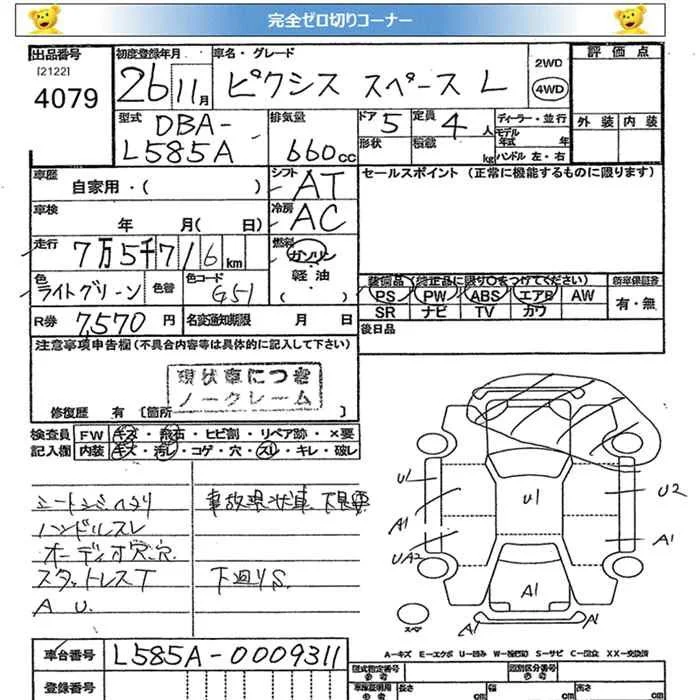 完全ゼロ切りコーナー
出品番号
[2122]
4079
初度登録年月
26 11月
車名・グレード
ピクシス スペース L
2WD
4WD
評価点
外装 内装
型式
DBA-
L585A
排気量
660cc
ドア 5
形状
定員 4人
積載 kg
ディーラー・並行
モデル
年式 年
ハンドル 左・右
車歴
自家用・( )
シフト AT
セールスポイント (正常に機能するものに限ります)
車検
年 月( 日)
冷房 AC
走行
7万5千716km
燃料
ガソリン
軽・油
( )
色
ライトグリーン
色替
色コード
G51
装備品 (純正品に限り○をつけてください)
新車保証書
PS PW ABS エアB AW
SR ナビ TV カワ
有・無
R券 7,570 円
名変通知期限 月 日
後日品
注意事項申告欄 (不具合内容等は具体的に記入して下さい)
現状車につき
ノークレーム
修復歴 有 [箇所 ]
検査員
記入欄
FW キズ・飛石・ヒビ割・リペア跡・×要
内装 キズ・汚レ・コゲ・穴・スレ・キレ・破レ
ハンドルスレ
オーディオ穴、穴
スタットレスT
A U.
事故現状車 下見要
下廻りS.
U1
A1
UA2
U1
A1
U2
A1
A1
A1
スペア
A-キズ E-エクボ U-凹み W-補修跡 S-サビ C-腐食 XX-交換済
車台番号
L585A-0009311
登録番号
型式指定番号
参考
類別区分番号
参考
車庫証明用
参考
長さ
幅
高さ